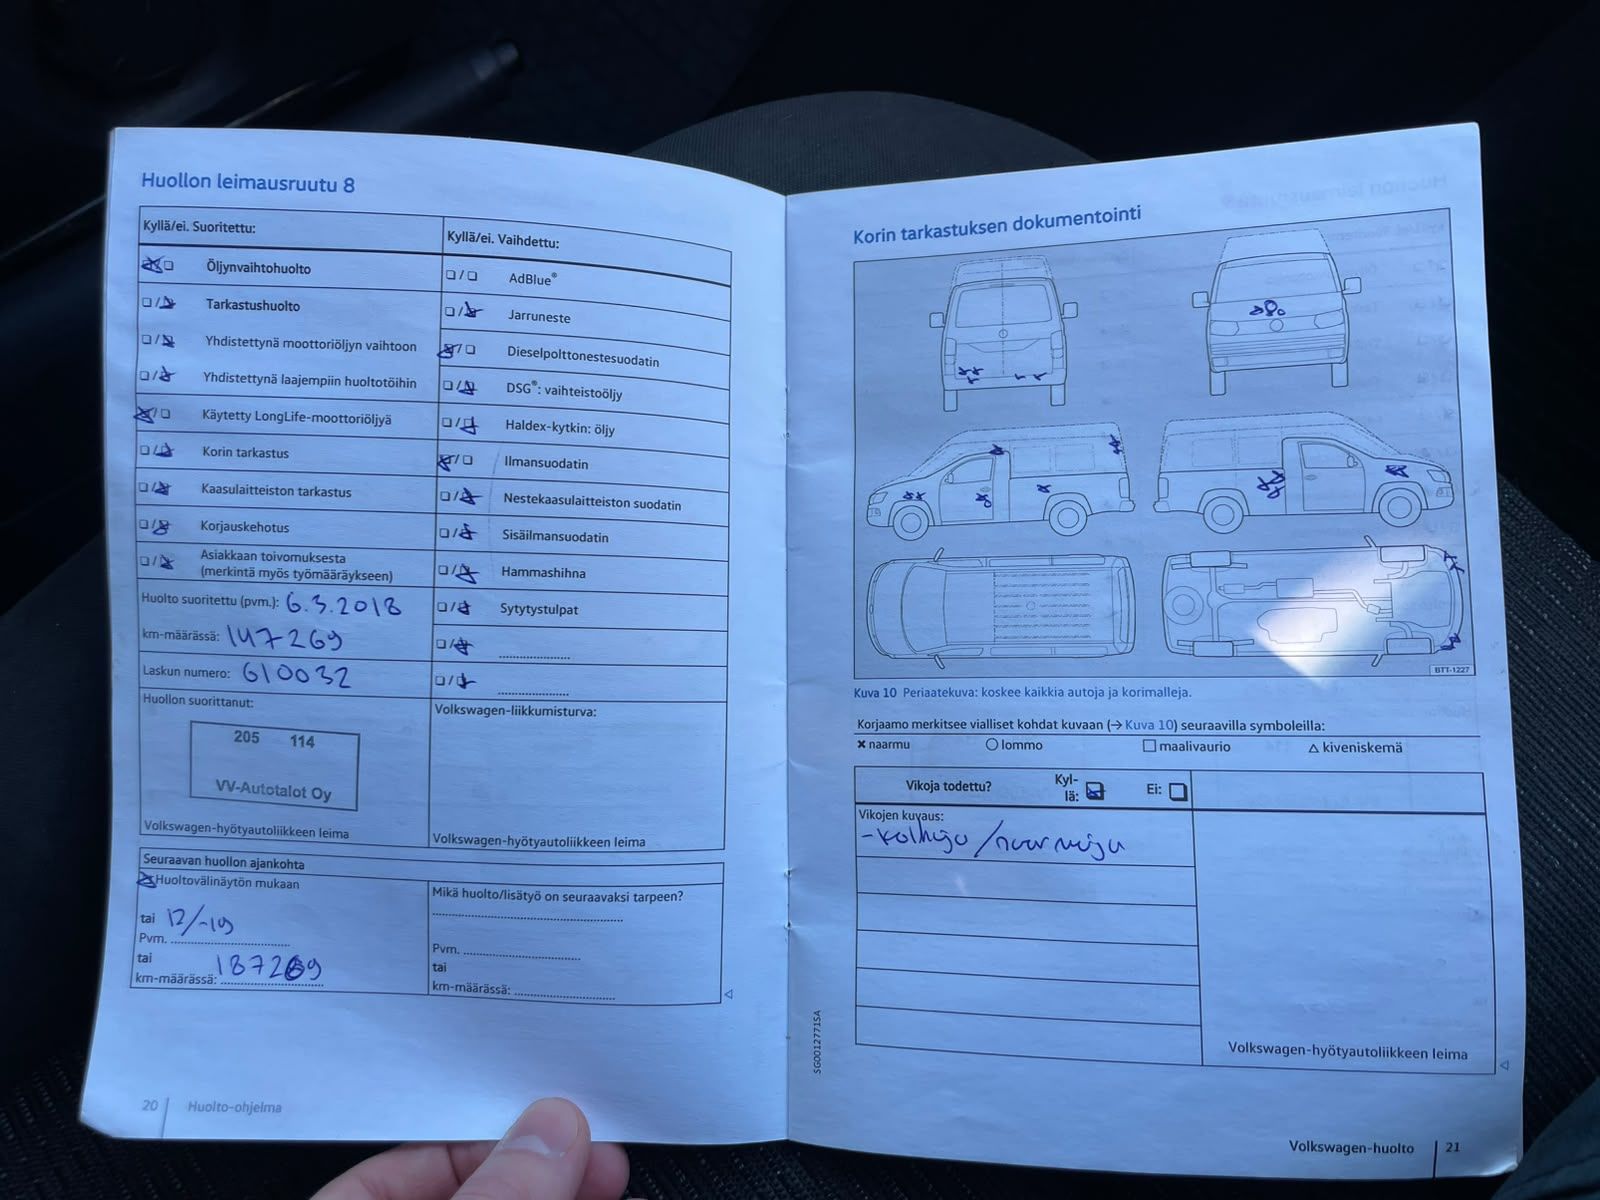 Huollon leimausruutu 8
Kyllä/ei. Suoritettu:
Öljynvaihtohuolto
Tarkastushuolto
Yhdistettynä moottoriöljyn vaihtoon
Yhdistettynä laajempiin huoltotöihin
Käytetty LongLife-moottoriöljyä
Korin tarkastus
Kaasulaitteiston tarkastus
Korjauskehotus
Asiakkaan toivomuksesta
(merkintä myös työmääräykseen)
Huolto suoritettu (pvm.): 6.3.2018
km-määrässä: 147269
Laskun numero: 610032
Huollon suorittanut:
205 114
VV-Autotalot Oy
Volkswagen-hyötyautoliikkeen leima
Kyllä/ei. Vaihdettu:
AdBlue®
Jarruneste
Dieselpolttonestesuodatin
DSG®: vaihteistoöljy
Haldex-kytkin: öljy
Ilmansuodatin
Nestekaasulaitteiston suodatin
Sisäilmansuodatin
Hammashihna
Sytytystulpat
Volkswagen-liikkumisturva:
Volkswagen-hyötyautoliikkeen leima
Seuraavan huollon ajankohta
Huoltovälinäytön mukaan
tai 12/-19
Pvm.
tai
km-määrässä: 187269
Mikä huolto/lisätyö on seuraavaksi tarpeen?
Pvm.
tai
km-määrässä:
20 Huolto-ohjelma
Korin tarkastuksen dokumentointi
BTT-1227
Kuva 10 Periaatekuva: koskee kaikkia autoja ja korimalleja.
Korjaamo merkitsee vialliset kohdat kuvaan (→ Kuva 10) seuraavilla symboleilla:
× naarmu ○ lommo □ maalivaurio △ kiveniskemä
Vikoja todettu? Kyl-
lä: Ei:
Vikojen kuvaus:
-kolhuja/naarmuja
Volkswagen-hyötyautoliikkeen leima
SG0012771SA
Volkswagen-huolto 21